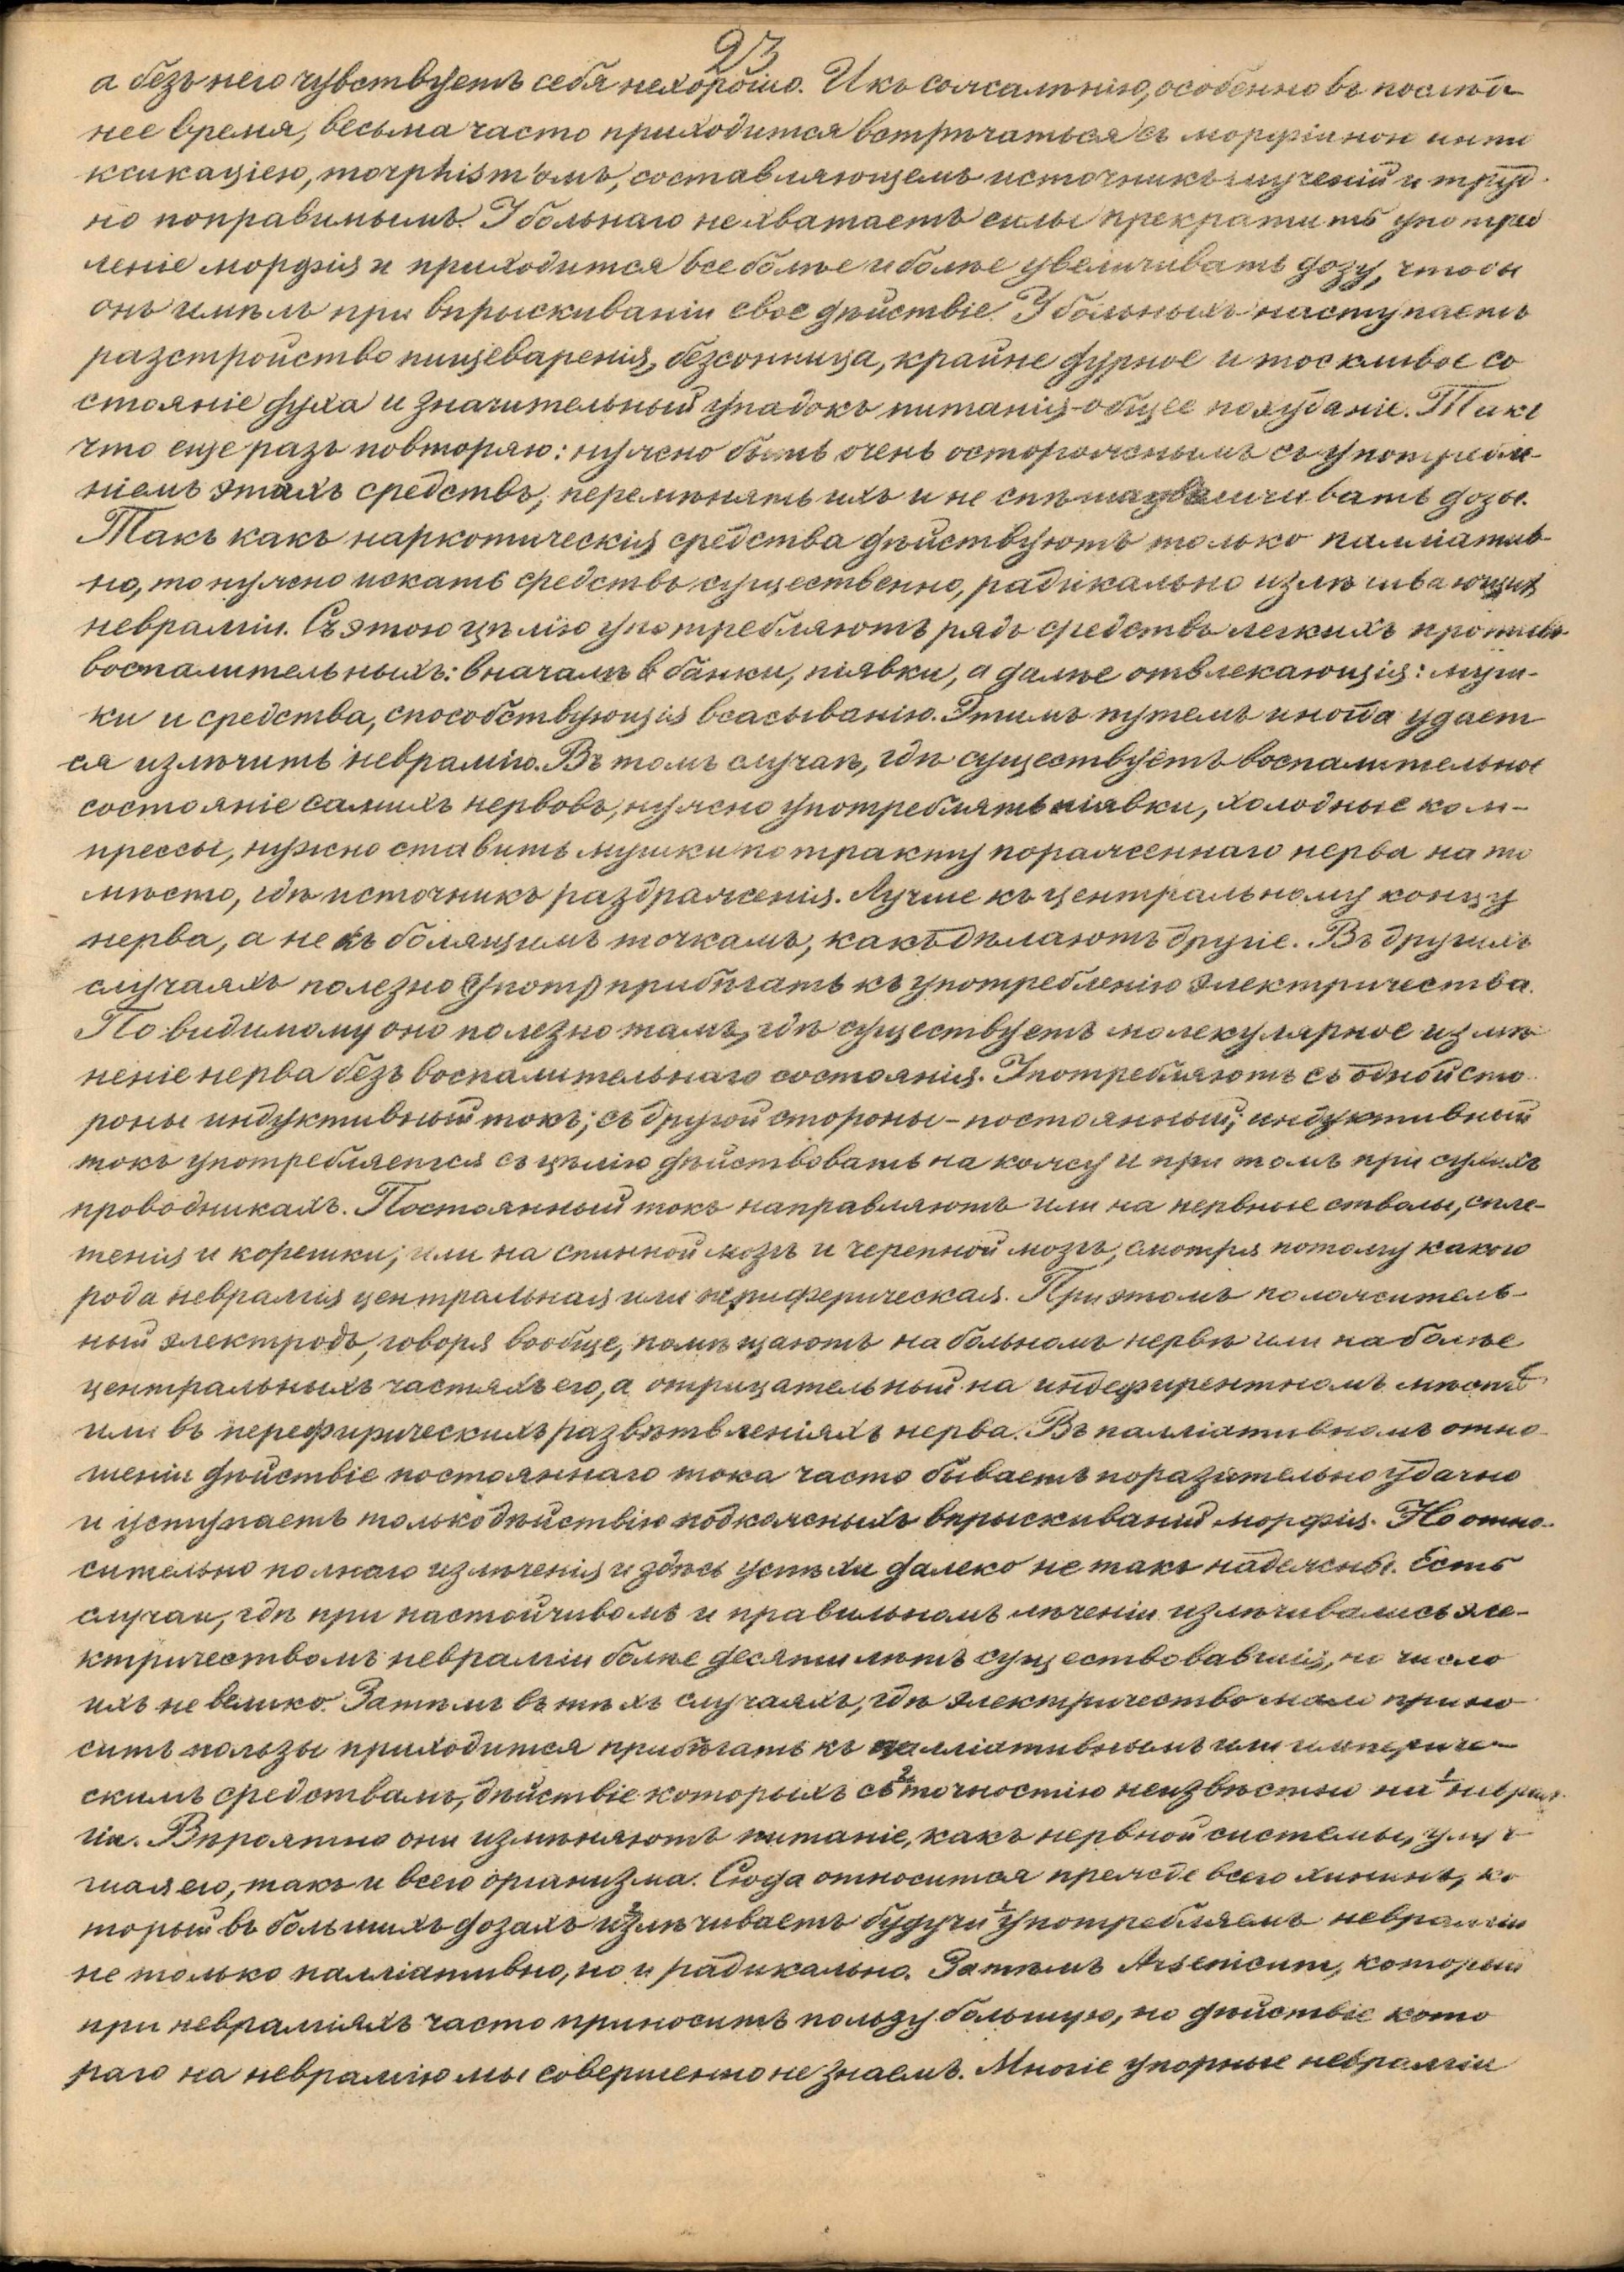 23
а безъ него чувствуетъ себя нехорошо. И къ сожалѣнію, особенно въ послѣд-
нее время, весьма часто приходится встрѣчаться съ морфійною инто
ксикаціею, morphism'омъ, составляющемъ источникъ мученій и труд-
но поправимымъ. У больнаго не хватаетъ силы прекратить употреб
леніе морфія и приходится все болѣе и болѣе увеличивать дозу, чтобы
онъ имѣлъ при впрыскиваніи свое дѣйствіе. У больныхъ наступаетъ
разстройство пищеваренія, безсонница, крайне дурное и тоскливое со
стояніе духа и значительный упадокъ питанія - общее похуданіе. Такъ
что еще разъ повторяю: нужно быть очень осторожнымъ съ употребле-
ніемъ этихъ средствъ, перемѣнять ихъ и не спѣша увеличивать дозы.
Такъ какъ наркотическія средства дѣйствуютъ только палліатив-
но, то нужно искать средствъ существенно, радикально излѣчивающихъ
невралгіи. Съ этою цѣлію употребляютъ рядъ средствъ легкихъ противо-
воспалительныхъ: вначалѣ банки, піявки, а далѣе отвлекающія: муш-
ки и средства, способствующія всасыванію. Этимъ путемъ иногда удает
ся излѣчить невралгію. Въ томъ случаѣ, гдѣ существуетъ воспалительное
состояніе самихъ нервовъ, нужно употреблять піявки, холодные ком-
прессы, нужно ставить мушки по тракту пораженнаго нерва на то
мѣсто, гдѣ источникъ раздраженія. Лучше къ центральному концу
нерва, а не къ болящимъ точкамъ, какъ дѣлаютъ другіе. Въ другихъ
случаяхъ полезно (употр) прибѣгать къ употребленію электричества.
Повидимому оно полезно тамъ, гдѣ существуетъ молекулярное измѣ-
неніе нерва безъ воспалительнаго состоянія. Употребляютъ съ одной сто-
роны индуктивный токъ; съ другой стороны - постоянный; индуктивный
токъ употребляется съ цѣлію дѣйствовать на кожу и при томъ при сухихъ
проводникахъ. Постоянный токъ направляютъ или на нервные стволы, спле-
тенія и корешки; или на спинной мозгъ и черепной мозгъ, смотря потому какого
рода невралгія центральная или периферическая. При этомъ положитель-
ный электродъ, говоря вообще, помѣщаютъ на больномъ нервѣ или на болѣе
центральныхъ частяхъ его, а отрицательный на индефирентномъ мѣстѣ
или въ перефирическихъ развѣтвленіяхъ нерва. Въ палліативномъ отно-
шеніи дѣйствіе постояннаго тока часто бываетъ поразительно удачно
и уступаетъ только дѣйствію подкожныхъ впрыскиваній морфія. Но отно-
сительно полнаго излѣченія и здѣсь успѣхи далеко не такъ надежны. Есть
случаи, гдѣ при настойчивомъ и правильномъ лѣченіи излѣчивались эле-
ктричествомъ невралгіи болѣе десяти лѣтъ существовавшія, но число
ихъ не велико. Затѣмъ въ тѣхъ случаяхъ, гдѣ электричество мало прино-
ситъ пользы приходится прибѣгать къ палліативнымъ или империче-
скимъ средствамъ, дѣйствіе которыхъ съ 2 точностію неизвѣстно на 1 неврал-
гіи. Вѣроятно они измѣняютъ питаніе, какъ нервной системы, улуч
шая его, такъ и всего организма. Сюда относится прежде всего хининъ, ко
торый въ большихъ дозахъ 2 излѣчиваетъ будучи 1 употребляемъ невралгіи
не только палліативно, но и радикально. Затѣмъ Arsenicum, который
при невралгіяхъ часто приноситъ пользу большую, но дѣйствіе кото
раго на невралгію мы совершенно не знаемъ. Многіе упорные невралгіи